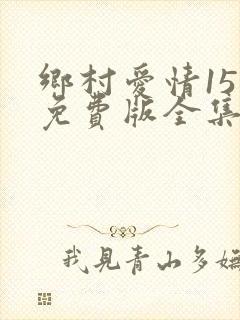 鄉村愛情15
免費版全集
我見青山多嫵